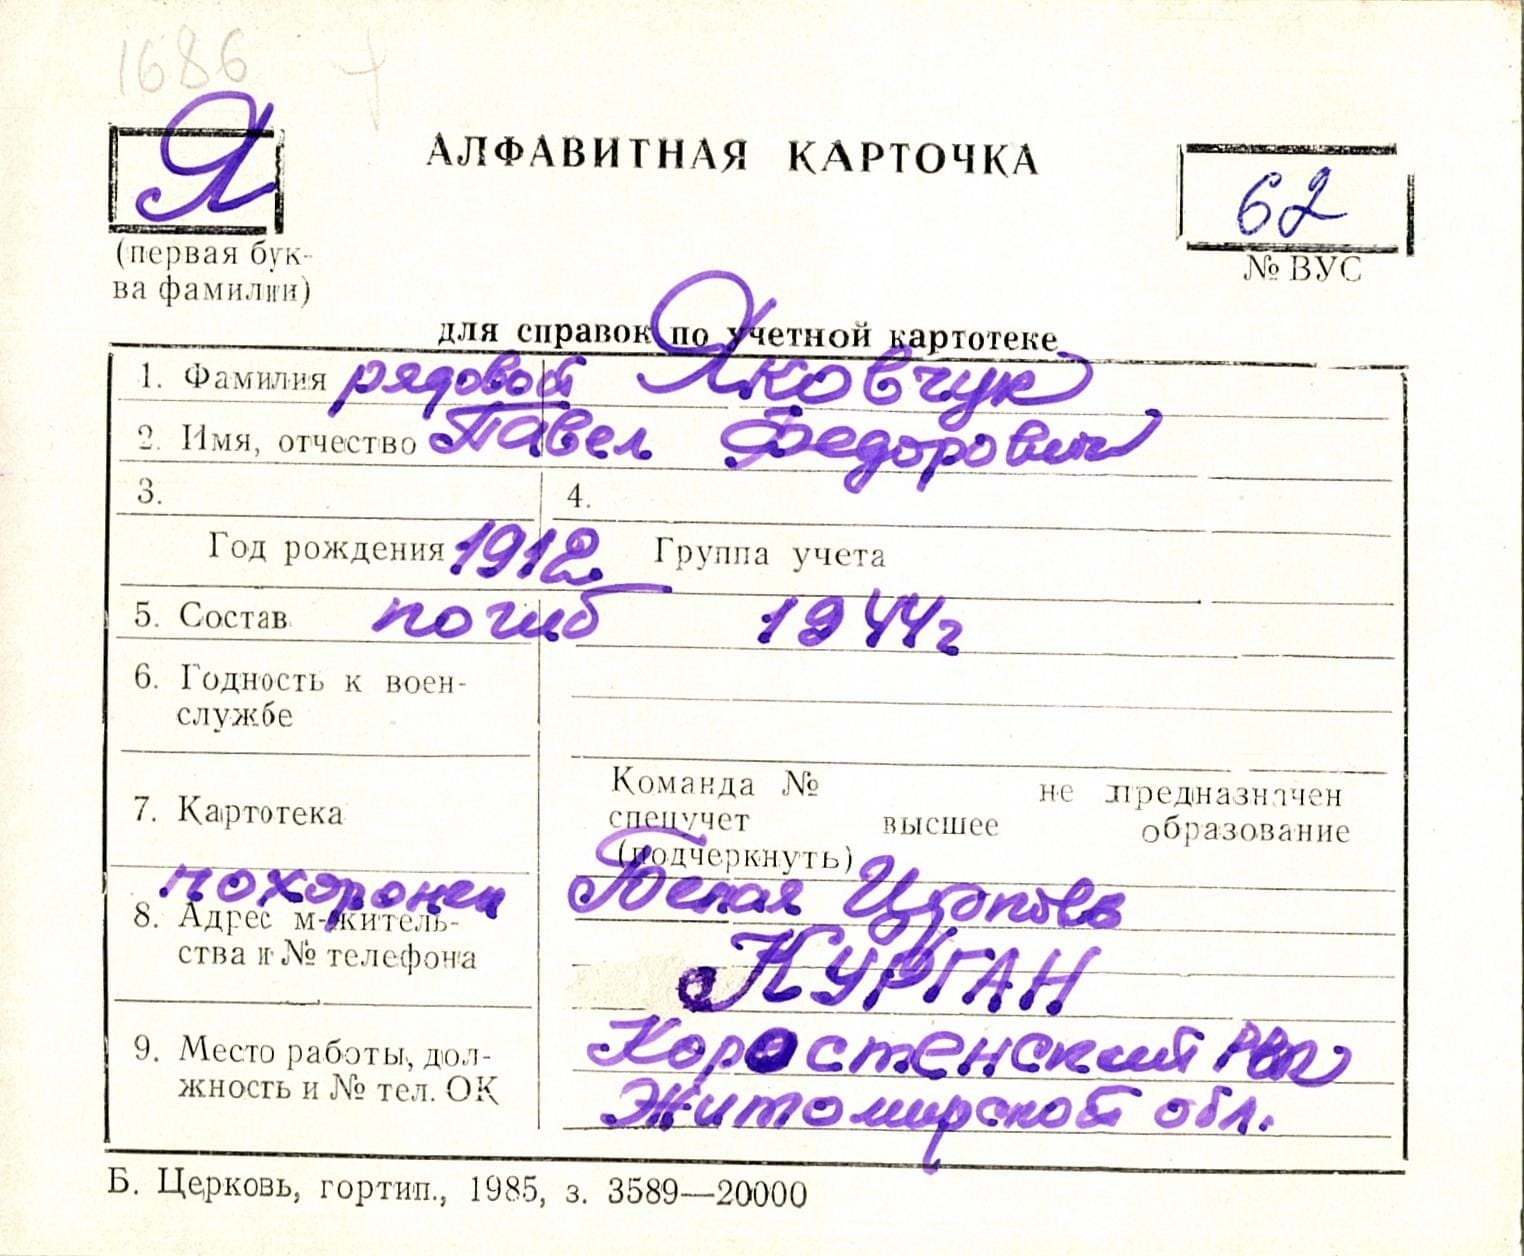 1686
Я
АЛФАВИТНАЯ КАРТОЧКА
62
(первая бук-
ва фамилии)
№ ВУС
для справок по учетной картотеке
1. Фамилия рядовой Яковчук
2. Имя, отчество Павел Федорович
3. 4.
Год рождения 1912 Группа учета
5. Состав погиб 1944г
6. Годность к воен-
службе
7. Картотека
Команда № не предназначен
спецучет высшее образование
(подчеркнуть)
похоронен Белая Церковь
8. Адрес м-житель-
ства и № телефона
Курган
9. Место работы, дол-
жность и № тел. ОК
Коростенский РВК
Житомирской обл.
Б. Церковь, гортип., 1985, з. 3589—20000